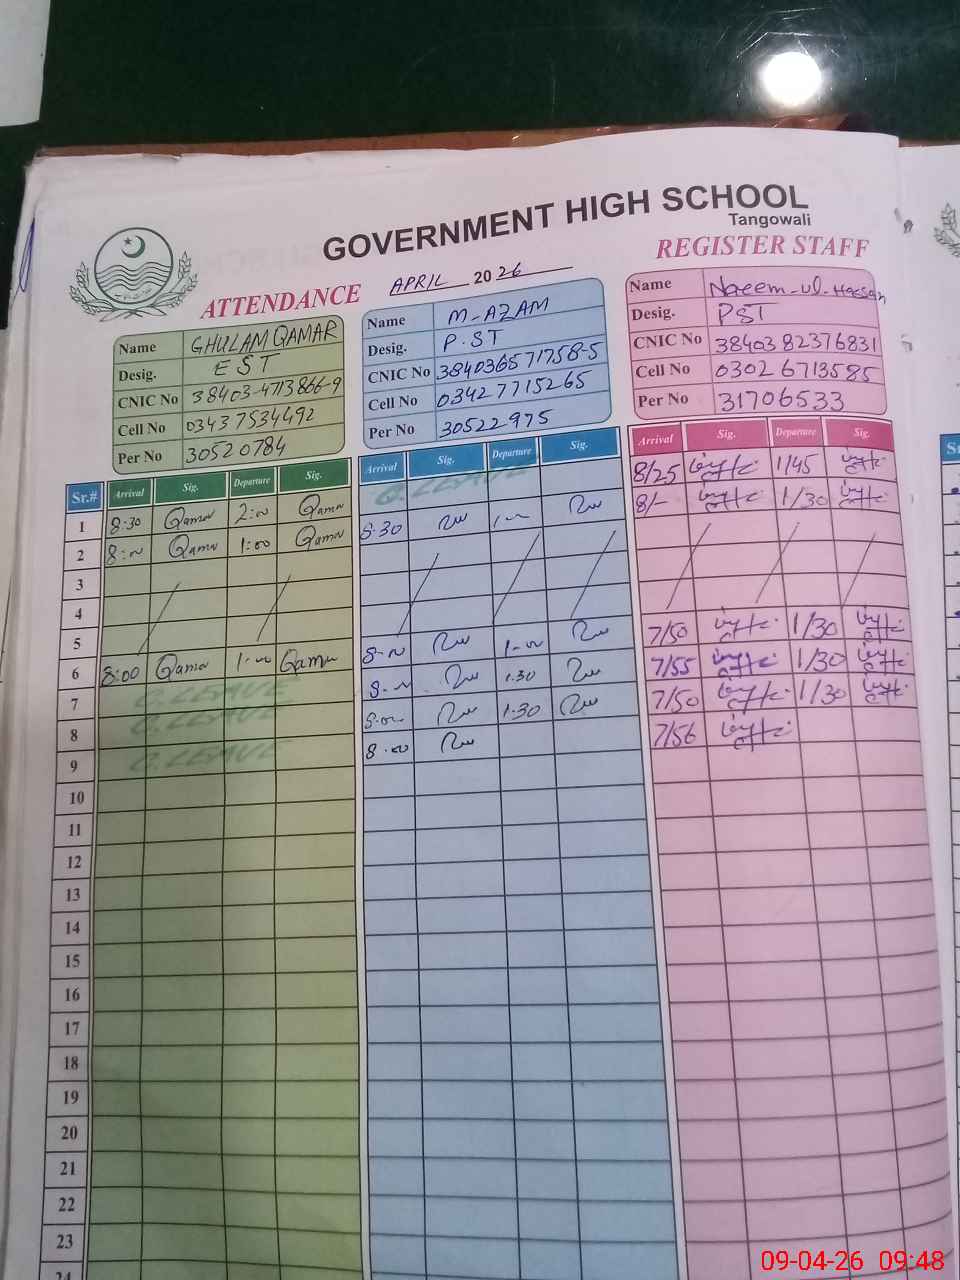 GOVERNMENT HIGH SCHOOL
Tangowali
ATTENDANCE APRIL 2026 REGISTER STAFF
Name GHULAM QAMAR
Desig. EST
CNIC No 38403-4713866-9
Cell No 03437534492
Per No 30520784
Name M-AZAM
Desig. P.ST
CNIC No 384036571758-5
Cell No 03427715265
Per No 30522975
Name Naeem-ul-Hassan
Desig. PST
CNIC No 3840382376831
Cell No 03026713585
Per No 31706533
Sr.# Arrival Sig. Departure Sig. Arrival Sig. Departure Sig. Arrival Sig. Departure Sig.
1 8:30 Qamar 2:00 Qamar C.LEAVE 8/25 1/45
2 8:00 Qamar 1:00 Qamar 8:30 1-00 8/- 1/30
3
4
5 8-00 1-00 7/50 1/30
6 8:00 Qamar 1-00 Qamar 8-00 1.30 7/55 1/30
7 C.LEAVE 8:00 1.30 7/50 1/30
8 C.LEAVE 8.00 7/56
9 C.LEAVE
10
11
12
13
14
15
16
17
18
19
20
21
22
23
24
09-04-26 09:48